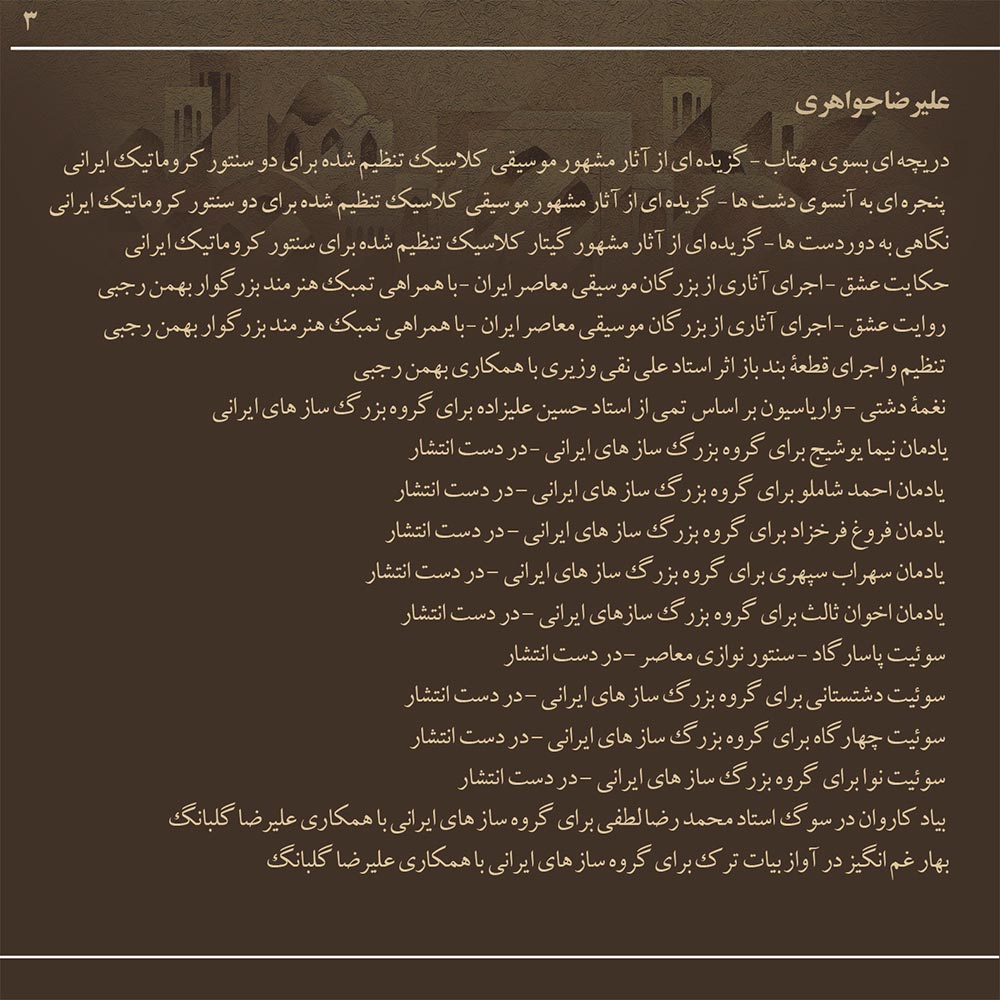 ۳
علیرضا جواهری
دریچه ای بسوی مهتاب - گزیده ای از آثار مشهور موسیقی کلاسیک تنظیم شده برای دو سنتور کروماتیک ایرانی
پنجره ای به آنسوی دشت ها - گزیده ای از آثار مشهور موسیقی کلاسیک تنظیم شده برای دو سنتور کروماتیک ایرانی
نگاهی به دوردست ها - گزیده ای از آثار مشهور گیتار کلاسیک تنظیم شده برای سنتور کروماتیک ایرانی
حکایت عشق - اجرای آثاری از بزرگان موسیقی معاصر ایران - با همراهی تمبک هنرمند بزرگوار بهمن رجبی
روایت عشق - اجرای آثاری از بزرگان موسیقی معاصر ایران - با همراهی تمبک هنرمند بزرگوار بهمن رجبی
تنظیم و اجرای قطعهٔ بند باز اثر استاد علی نقی وزیری با همکاری بهمن رجبی
نغمهٔ دشتی - واریاسیون بر اساس تمی از استاد حسین علیزاده برای گروه بزرگ ساز های ایرانی
یادمان نیما یوشیج برای گروه بزرگ ساز های ایرانی - در دست انتشار
یادمان احمد شاملو برای گروه بزرگ ساز های ایرانی - در دست انتشار
یادمان فروغ فرخزاد برای گروه بزرگ ساز های ایرانی - در دست انتشار
یادمان سهراب سپهری برای گروه بزرگ ساز های ایرانی - در دست انتشار
یادمان اخوان ثالث برای گروه بزرگ سازهای ایرانی - در دست انتشار
سوئیت پاسارگاد - سنتور نوازی معاصر - در دست انتشار
سوئیت دشتستانی برای گروه بزرگ ساز های ایرانی - در دست انتشار
سوئیت چهارگاه برای گروه بزرگ ساز های ایرانی - در دست انتشار
سوئیت نوا برای گروه بزرگ ساز های ایرانی - در دست انتشار
بیاد کاروان در سوگ استاد محمد رضا لطفی برای گروه ساز های ایرانی با همکاری علیرضا گلبانگ
بهار غم انگیز در آواز بیات ترک برای گروه ساز های ایرانی با همکاری علیرضا گلبانگ